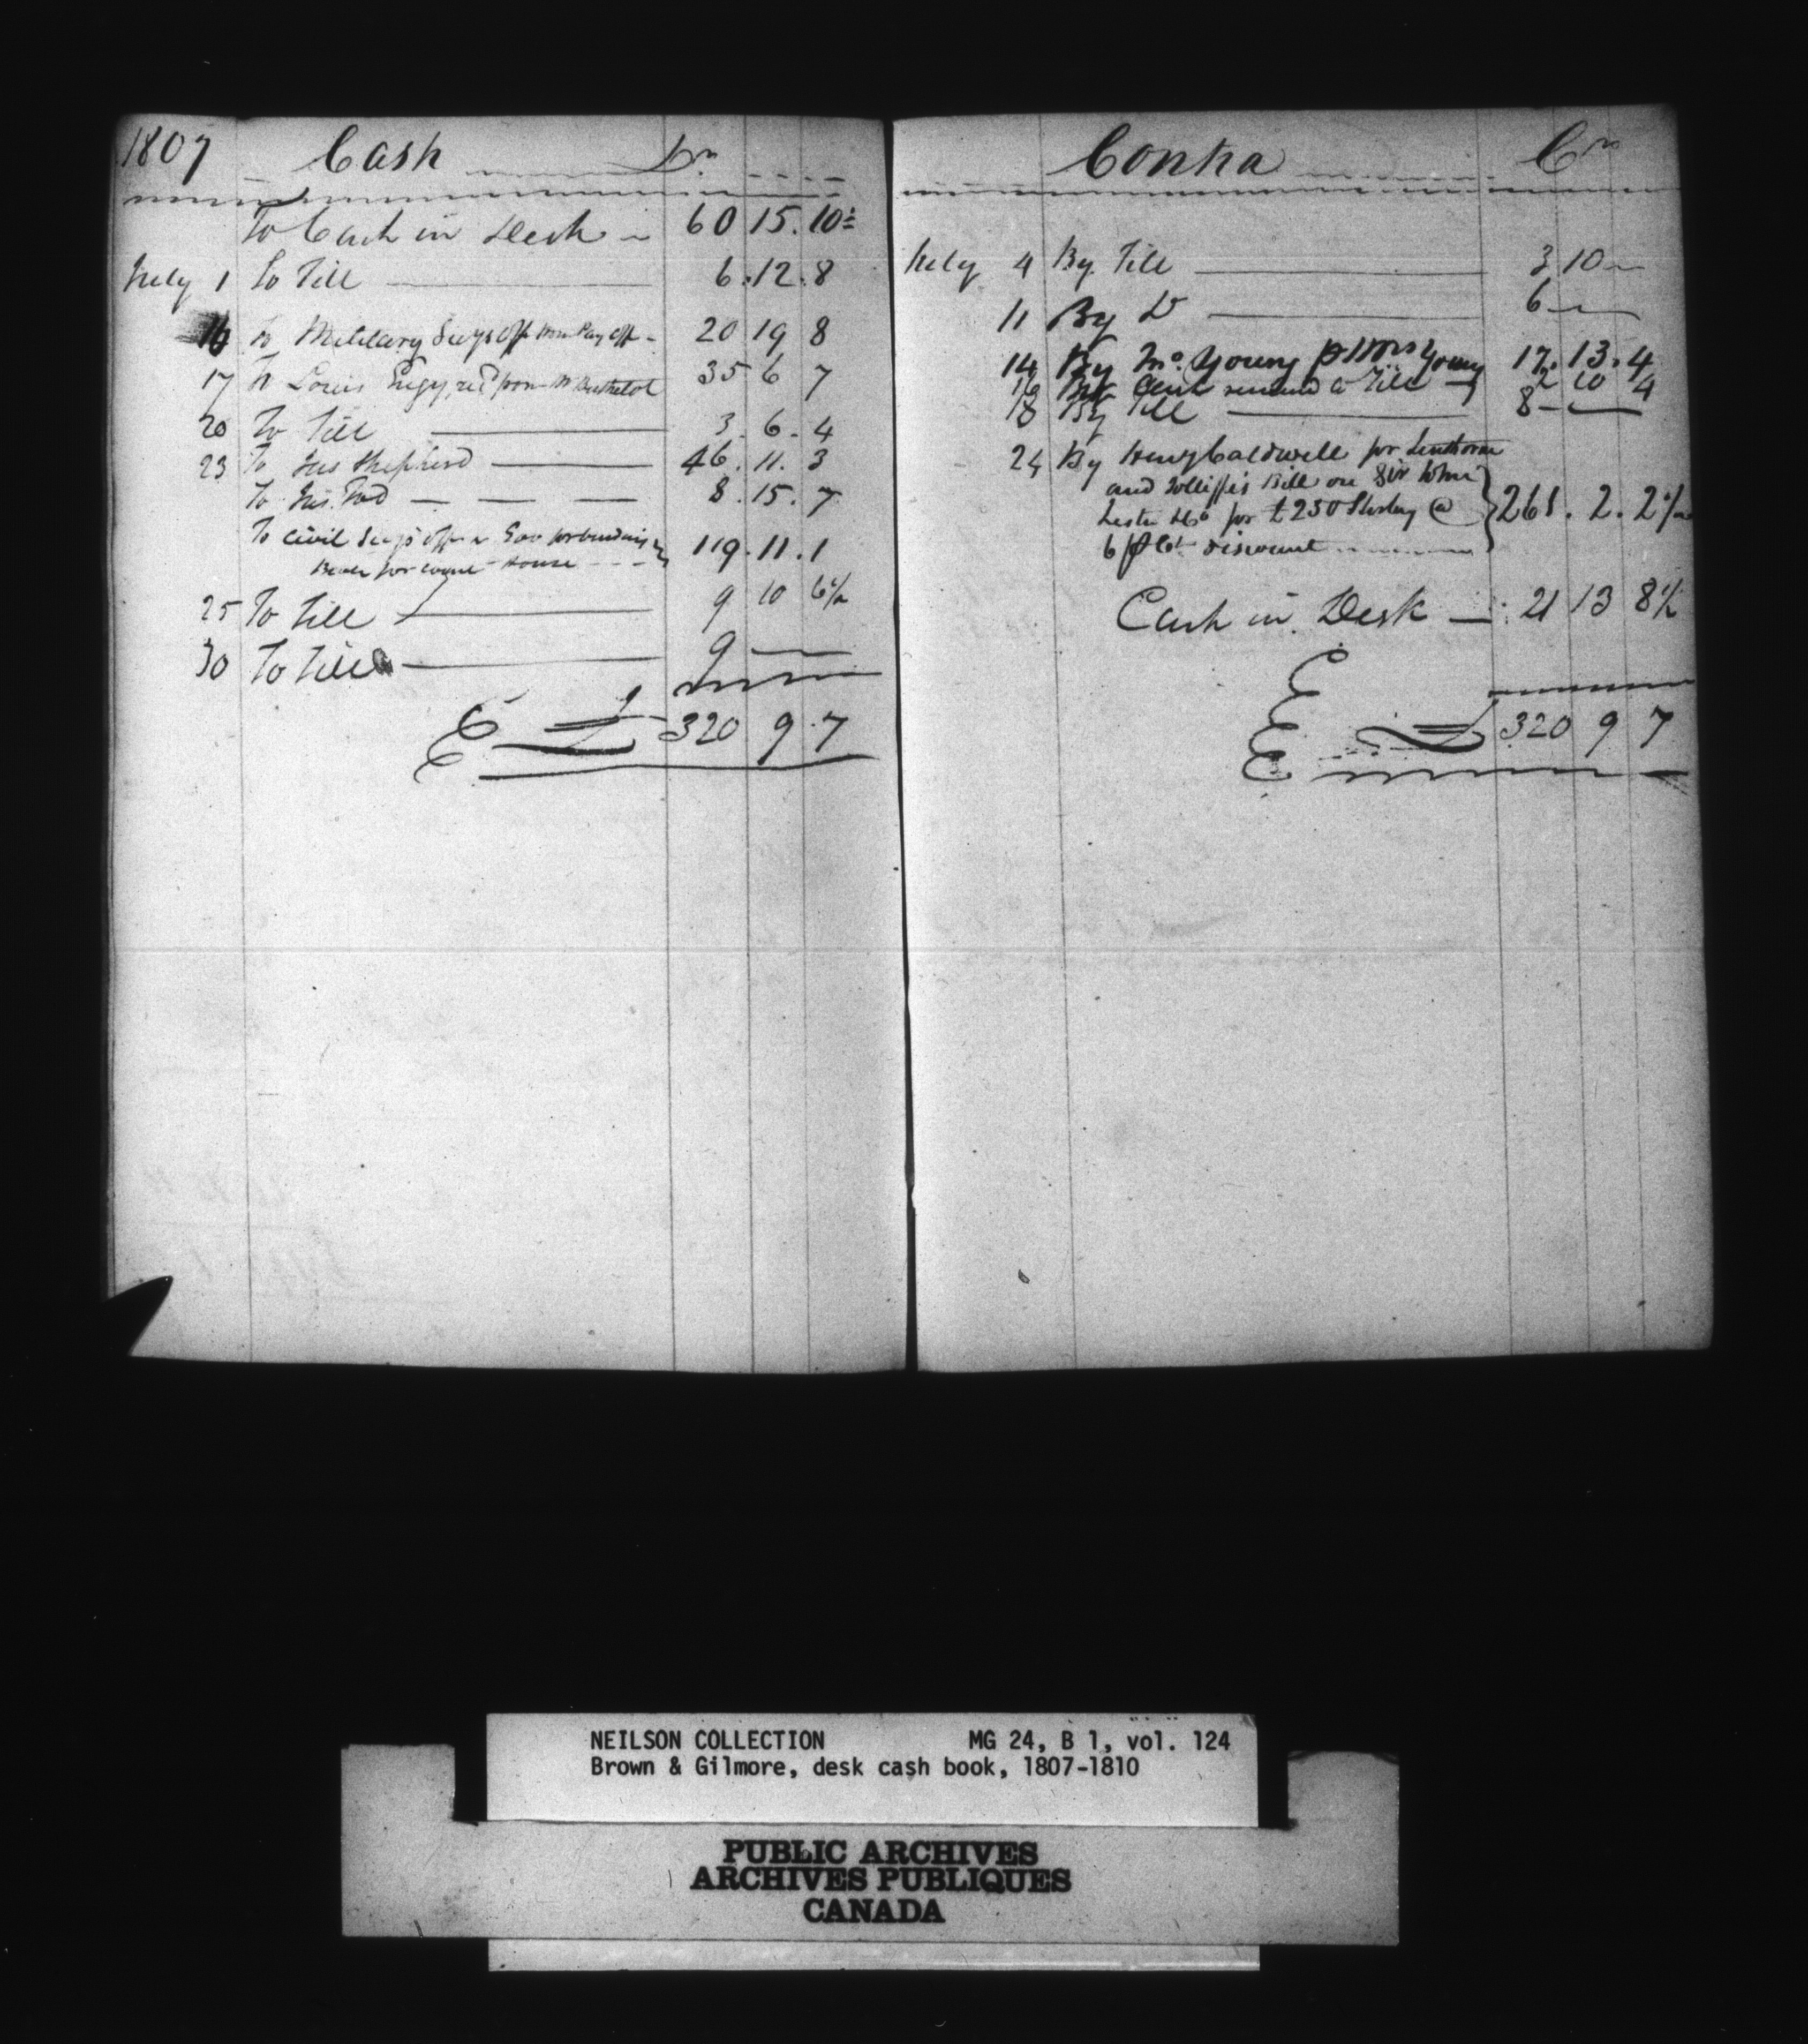 1807 Cash Dr
To Cash in Desk 60 15. 10½
July 1 To Till 6. 12. 8
16 To Military Secys Off from Pay off 20 19 8
17 To Louis recd from Mr Berthelot 35 6 7
20 To Till 3. 6. 4
23 To Jas Shepherd 46. 11. 3
To Jas. Tod 8. 15. 7
To Civil Secys Off Gov for binding
Books for House 119. 11. 1
25 To Till 9 10 6½
30 To Till 9
E E £ 320 9 7
Contra Cr
July 4 By Till 3 10
11 By Do 6
14 By Mo. Young p Young 17. 13. 4
16 By Cash to Till 2 10 4
18 By Till 8
24 By Henry Caldwell for Linthorne
and Jolliffe's Bill on Sir John
Lester & Co for £250 Sterling @
6 p Ct discount 261. 2. 2½
Cash in Desk 21 13 8½
E E E £ 320 9 7
NEILSON COLLECTION MG 24, B 1, vol. 124
Brown & Gilmore, desk cash book, 1807-1810
PUBLIC ARCHIVES
ARCHIVES PUBLIQUES
CANADA